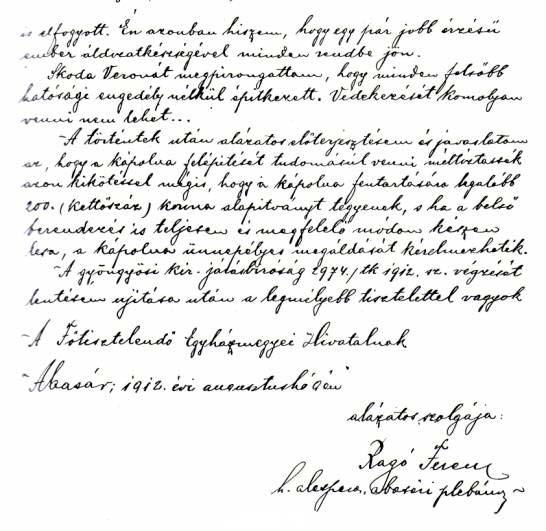 is elfogyott. Én azonban hiszem, hogy egy pár jobb érzésű
ember áldozatkészségével minden rendbe jön.
Skoda Veronát megpirongattam, hogy minden felsőbb
hatósági engedély nélkül építkezett. Védekezését komolyan
venni nem lehet...
A történtek után alázatos előterjesztésem és javaslatom
az, hogy a kápolna felépítését tudomásul venni méltóztassék
azon kikötéssel mégis, hogy a kápolna fentartására legalább
200. (kettőszáz) korona alapítványt tegyenek, s ha a belső
berendezés is teljesen és megfelelő módon készen
lesz, a kápolna ünnepélyes megáldását kérelmezhetik.
A gyöngyösi kir. járásbíróság 2974./tk 1912. sz. végzését
újítása után a legmélyebb tisztelettel vagyok
A Főtisztelendő Egyházmegyei Hivatalnak
Abasár, 1912. évi augusztushó én
alázatos szolgája:
Ragó Ferenc
h. alesperes, abasári plébános